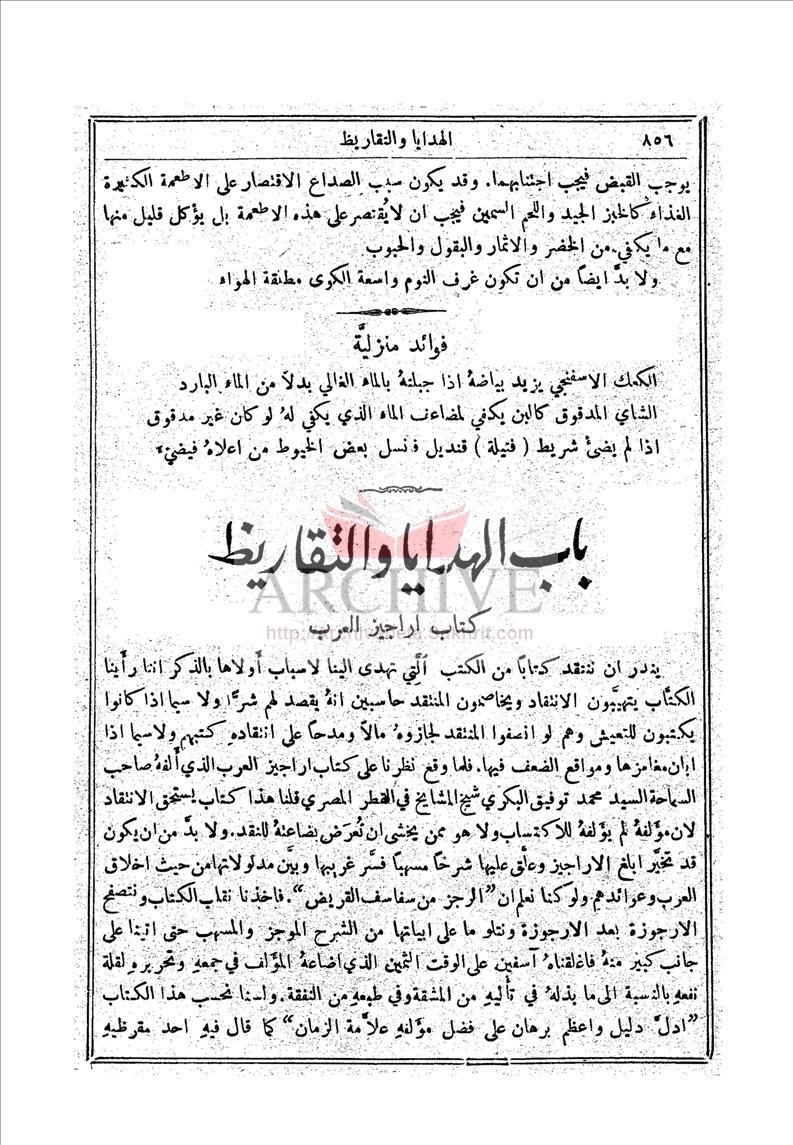 ٨٥٦
الهدايا والتقاريظ
يوجب القبض فيجب اجتنابهما. وقد يكون سبب الصداع الاقتصار على الاطعمة الكثيرة
الغذاء كالخبز الجيد واللحم السمين فيجب ان لا يُقتصر على هذه الاطعمة بل يؤكل قليل منها
مع ما يكفي من الخضر والاثمار والبقول والحبوب
ولا بدَّ ايضاً من ان تكون غرف النوم واسعة الكوى مطلقة الهواء
فوائد منزليَّة
الكعك الاسفنجي يزيد بياضهُ اذا جبلتهُ بالماء الغالي بدلاً من الماء البارد
الشاي المدقوق كالبن يكفي لمضاعف الماء الذي يكفي لهُ لو كان غير مدقوق
اذا لم يضئ شريط (فتيلة) قنديل فانسل بعض الخيوط من اعلاهُ فيضيء
باب الهدايا والتقاريظ
ARCHIVE
كتاب اراجيز العرب
http://Archivebeta.Sakhrit.com
يندر ان ننتقد كتاباً من الكتب التي تهدى الينا لاسباب أولاها بالذكر اننا رأينا
الكتَّاب يتهيَّبون الانتقاد ويخاصمون المنتقد حاسبين انهُ يقصد لهم شرًّا ولا سيما اذا كانوا
يكتبون للتعيش وهم لو انصفوا المنتقد لجازوهُ مالاً ومدحاً على انتقادهِ كتبهم ولا سيما اذا
ابان مغامزها ومواقع الضعف فيها. فلما وقع نظرنا على كتاب اراجيز العرب الذي ألفهُ صاحب
السماحة السيد محمد توفيق البكري شيخ المشايخ في القطر المصري قلنا هذا كتاب يستحق الانتقاد
لان مؤلفهُ لم يؤلفهُ للاكتساب ولا هو ممن يخشى ان تُعرَض بضاعتهُ للنقد. ولا بدَّ من ان يكون
قد تخيَّر ابلغ الاراجيز وعلَّق عليها شرحاً مسهباً فسَّر غريبها وبيَّن مدلولاتها من حيث اخلاق
العرب وعوائدهم ولو كنا نعلم ان "الرجز من سفاسف القريض". فاخذنا نقلب الكتاب ونتصفح
الارجوزة بعد الارجوزة ونتلو ما على ابياتها من الشرح الموجز والمسهب حتى اتينا على
جانب كبير منهُ فاغلقناهُ آسفين على الوقت الثمين الذي اضاعهُ المؤلف في جمعهِ وتحريرهِ لقلة
نفعهِ بالنسبة الى ما بذلهُ في تأليفهِ من المشقة وفي طبعهِ من النفقة. ولسنا نحسب هذا الكتاب
"ادلَّ دليل واعظم برهان على فضل مؤلفهِ علاَّمة الزمان" كما قال فيهِ احد مقرظيهِ